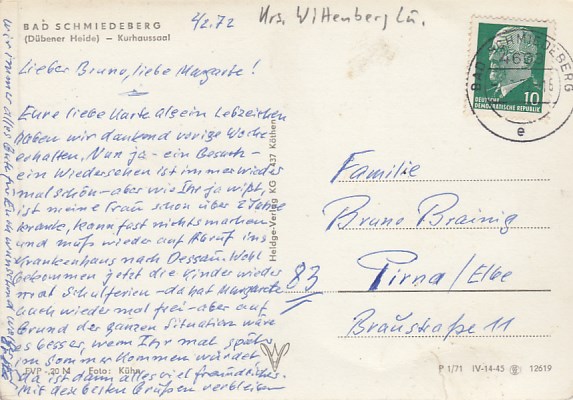 BAD SCHMIEDEBERG
(Dübener Heide) — Kurhaussaal
4/2.72
Krs. Wittenberg Lu.
Lieber Bruno, liebe Margarte!
Eure liebe Karte als ein Lebzeichen
haben wir dankend vorige Woche
erhalten. Nun ja - ein Besuch -
ein Wiedersehen ist immer wieder
mal schön - aber wie Ihr ja wißt,
ist meine Frau schon über 2 Jahre
krank, kann fast nichts machen
und muß wieder auf Abruf ins
Krankenhaus nach Dessau. Wohl
bekommen jetzt die Kinder wieder
mal Schulferien - da hat Margarete
auch wieder mal frei - aber auf
Grund der ganzen Situation wäre
es besser, wenn Ihr mal später
im Sommer kommen würdet
da ist dann alles viel freundlicher.
Mit den besten Grüßen verbleiben
wir immer alles Gute für Euch wünschend
EVP -,20 M Foto: Kühn
Heldge-Verlag KG 437 Köthen
BAD SCHMIEDEBERG
4603
e
10
DEUTSCHE
DEMOKRATISCHE REPUBLIK
Familie
Bruno Brainig
83
Pirna/Elbe
Braustraße 11
P 1/71 IV-14-45 12619